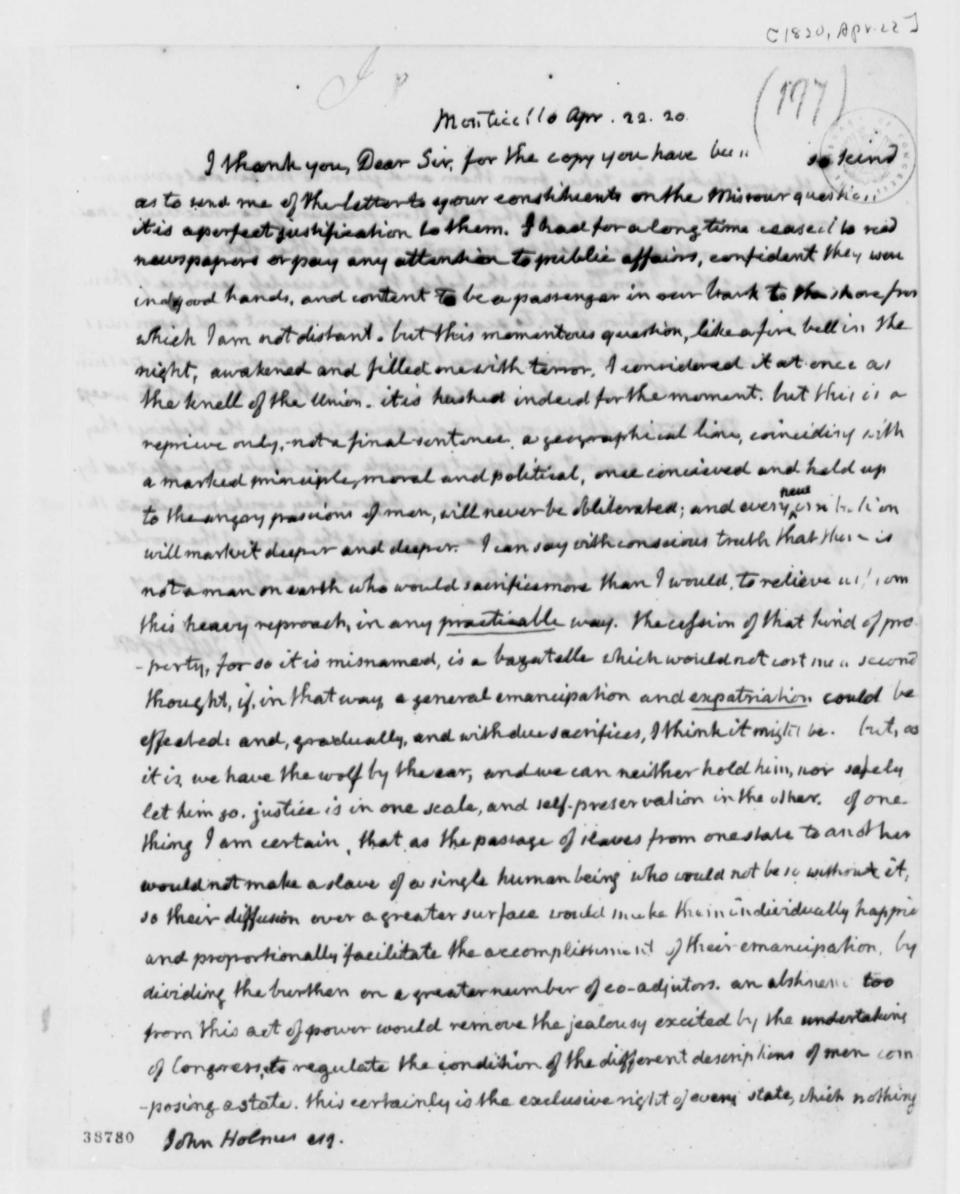 [1820, Apr. 22]
(177)
Monticello Apr. 22. 20.
I thank you, Dear Sir, for the copy you have been so kind
as to send me of the letter to your constituents on the Missouri question.
it is a perfect justification to them. I had for a long time ceased to read
newspapers or pay any attention to public affairs, confident they were
in good hands, and content to be a passenger in our bark to the shore from
which I am not distant. but this momentous question, like a fire bell in the
night, awakened and filled me with terror. I considered it at once as
the knell of the Union. it is hushed indeed for the moment. but this is a
reprieve only, not a final sentence. a geographical line, coinciding with
a marked principle, moral and political, once concieved and held up
to the angry passions of men, will never be obliterated; and every new irritation
will mark it deeper and deeper. I can say with conscious truth that there is
not a man on earth who would sacrifice more than I would, to relieve us from
this heavy reproach, in any practicable way. the cession of that kind of pro-
-perty, for so it is misnamed, is a bagatelle which would not cost me a second
thought, if, in that way, a general emancipation and expatriation could be
effected: and, gradually, and with due sacrifices, I think it might be. but, as
it is, we have the wolf by the ear, and we can neither hold him, nor safely
let him go. justice is in one scale, and self-preservation in the other. of one
thing I am certain, that as the passage of slaves from one state to another
would not make a slave of a single human being who would not be so without it,
so their diffusion over a greater surface would make them individually happier
and proportionally facilitate the accomplishment of their emancipation, by
dividing the burthen on a greater number of co-adjutors. an abstinence too
from this act of power would remove the jealousy excited by the undertaking
of Congress, to regulate the condition of the different descriptions of men com-
-posing a state. this certainly is the exclusive right of every state, which nothing
38780
John Holmes esq.